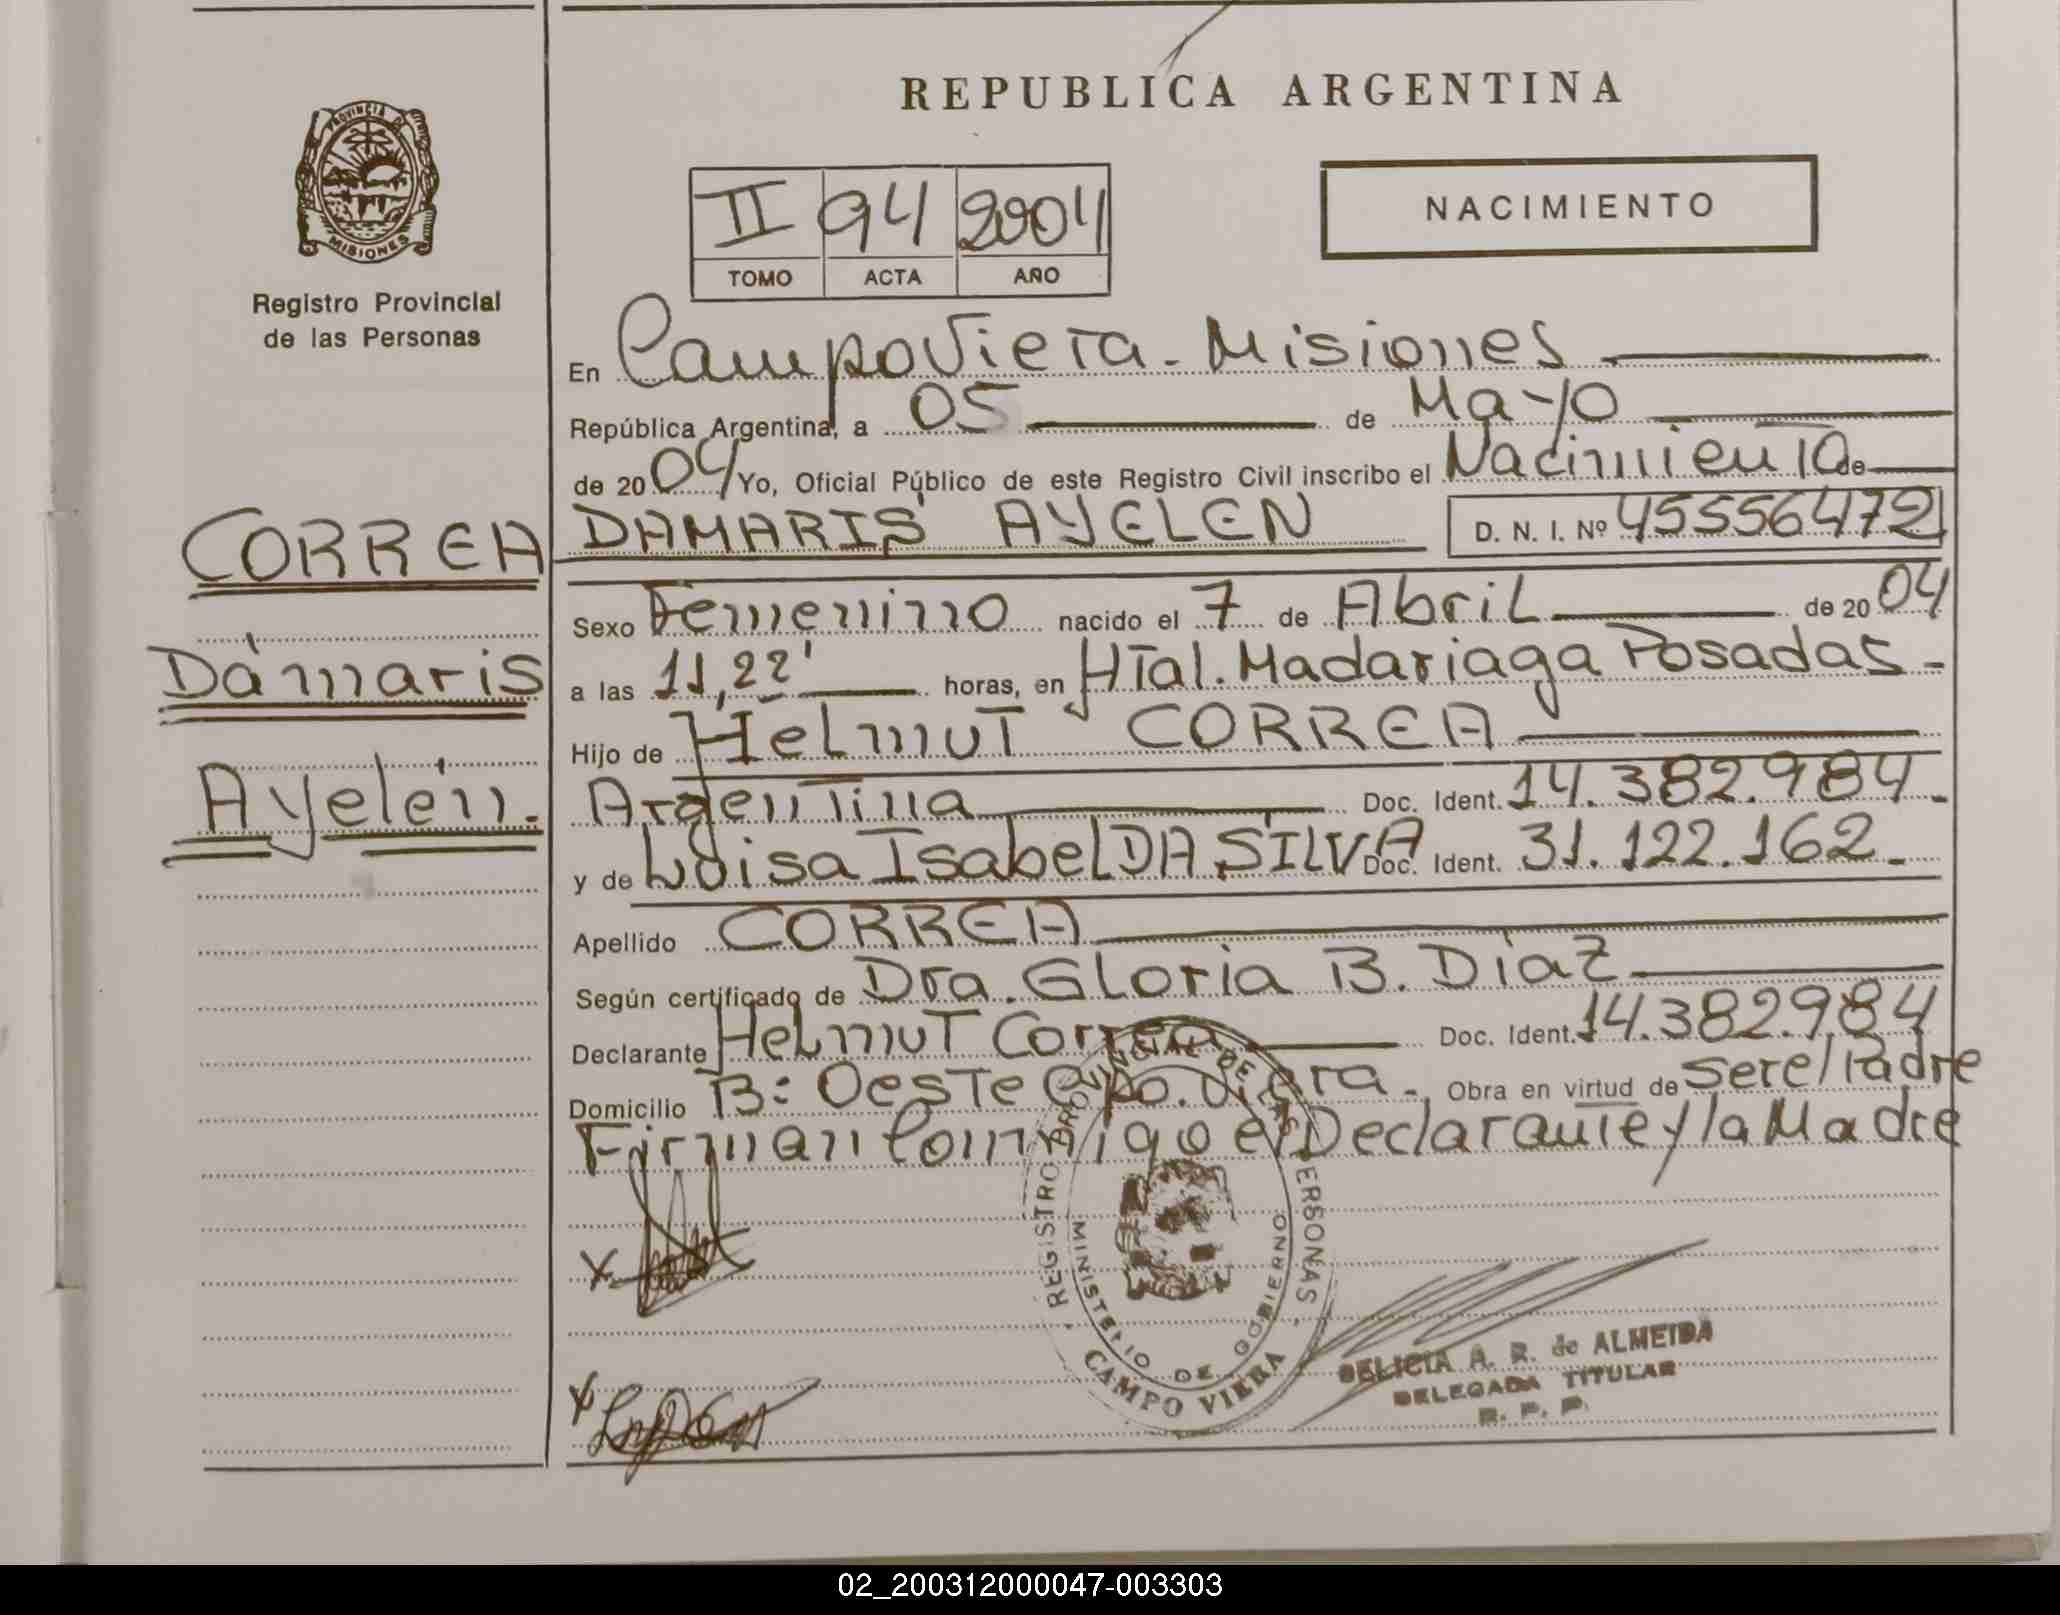 REPUBLICA ARGENTINA
PROVINCIA DE
MISIONES
Registro Provincial
de las Personas
II 94 2004
TOMO ACTA AÑO
NACIMIENTO
En Campo Viera - Misiones
República Argentina, a 05 de Mayo
de 2004 Yo, Oficial Público de este Registro Civil inscribo el Nacimiento de
CORREA DAMARIS AYELEN D. N. I. Nº 45556472
Sexo Femenino nacido el 7 de Abril de 2004
Dámaris
a las 11,22' horas, en HTal. Madariaga Posadas -
Hijo de Helmut CORREA
Ayelén.
Argentina Doc. Ident. 14.382.984 -
y de Luisa Isabel DA SILVA Doc. Ident. 31.122.162 -
Apellido CORREA
Según certificado de Dra. Gloria B. Díaz
Declarante Helmut Correa Doc. Ident. 14.382.984
Domicilio B: Oeste Cpo. Viera. Obra en virtud de ser el Padre
Firman Conmigo el Declarante y la Madre
REGISTRO PROVINCIAL DE LAS PERSONAS
MINISTERIO DE GOBIERNO
CAMPO VIERA
DELICIA A. R. de ALMEIDA
DELEGADA TITULAR
R. P. P.
02_200312000047-003303